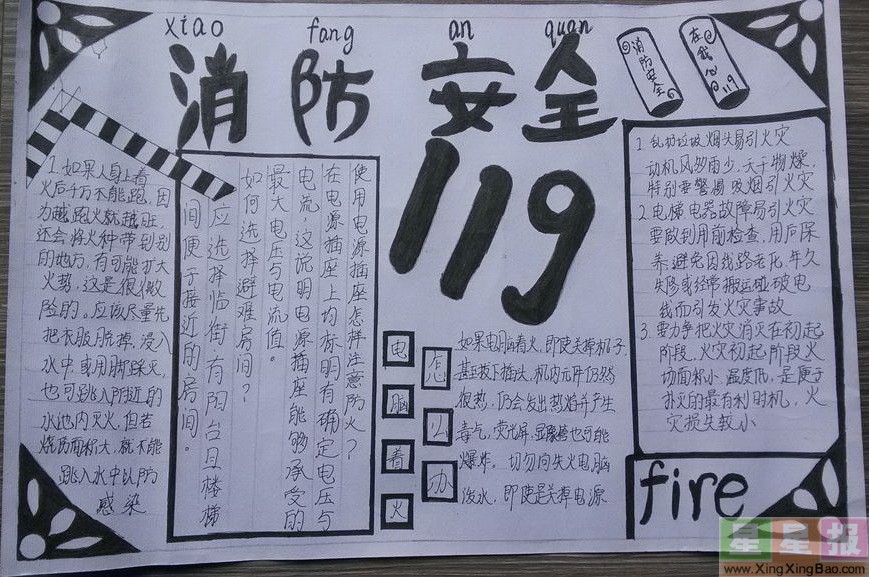 xiao fang an quan
消防安全
119
消防安全
在我心
119
1.如果人身上着
火后千万不能跑,因
为越跑火就越旺,
还会将火种带到别
的地方,有可能扩大
火势,这是很危
险的,应该尽量先
把衣服脱掉,浸入
水中,或用脚踩灭,
也可跳入附近的
水池内灭火,但若
烧伤面积大,就不能
跳入水中以防
感染
使用电源插座怎样注意防火?
在电源插座上均标明有确定电压与
电流,这说明电源插座能够承受的
最大电压与电流值。
如何选择避难房间?
应选择临街有阳台且楼梯
间便于接近的房间。
电脑着火
怎么办
如果电脑着火,即使关掉机子,
甚至拔下插头,机内元件仍然
很热,仍会发出热焰并产生
毒气,荧光屏,显像管也可能
爆炸。切勿向失火电脑
泼水,即使是关掉电源
1 乱扔垃圾烟头易引火灾
动机风多雨少,天干物燥,
特别要警惕吸烟引火灾
2 电梯电器故障易引火灾
要做到用前检查,用后保
养,避免因线路老化,年久
失修或经常搬运碰破电
线而引发火灾事故
3. 要力争把火灾消灭在初起
阶段,火灾初起阶段火
场面积小,温度低,是便于
扑灭的最有利时机,火
灾损失较小
fire
星星报
www.XingXingBao.com